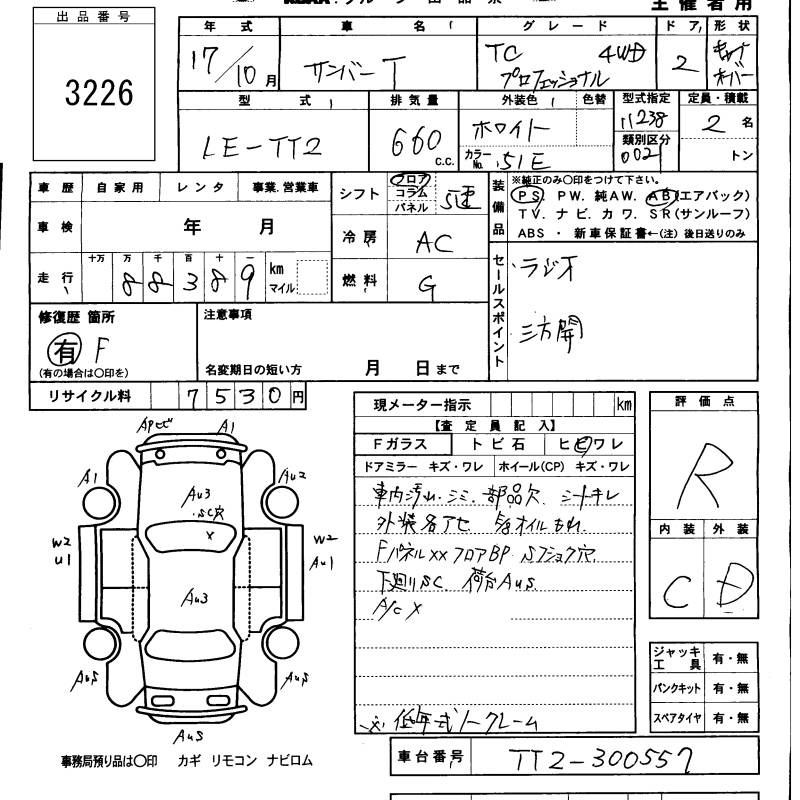 主催者用
出品番号
3226
年式 車名 グレード ドア 形状
17/10月 サンバーT TC 4WD プロフェッショナル 2 キャブオーバー
型式 排気量 外装色 色替 型式指定 定員・積載
LE-TT2 660 c.c. ホワイト 11238 2名
カラーNo. 51E 類別区分 0021 トン
車歴 自家用 レンタ 事業.営業車
シフト フロア コラム パネル 5速
装備品
※純正のみ〇印をつけて下さい。
PS. PW. 純AW. AB(エアバック)
TV. ナビ. カワ. SR(サンルーフ)
ABS ・ 新車保証書←(注) 後日送りのみ
車検 年 月
冷房 AC
走行 十万 万 千 百 十 一 km マイル
8 8 3 8 9
燃料 G
セールスポイント
ラジオ
三方開
修復歴 箇所
有 F
(有の場合は〇印を)
注意事項
名変期日の短い方 月 日まで
リサイクル料 7530円
現メーター指示 km
【査定員記入】
Fガラス トビ石 ヒビワレ
ドアミラー キズ・ワレ ホイール(CP) キズ・ワレ
車内汚れ・シミ. 部品欠 シートキレ
外装各アセ オイルもれ
Fパネルxx フロアBP Sブショク穴
下廻りSC. 荷台AuS.
A/C x
※ 低年式ノークレーム
評価点
R
内装 外装
C D
ジャッキ工具 有・無
パンクキット 有・無
スペアタイヤ 有・無
A1
A1 Au3 Au2
SC穴
x
W2 U1
W2 Au1
Au3
AuS AuS
AuS
事務局預り品は〇印 カギ リモコン ナビロム
車台番号 TT2-300557